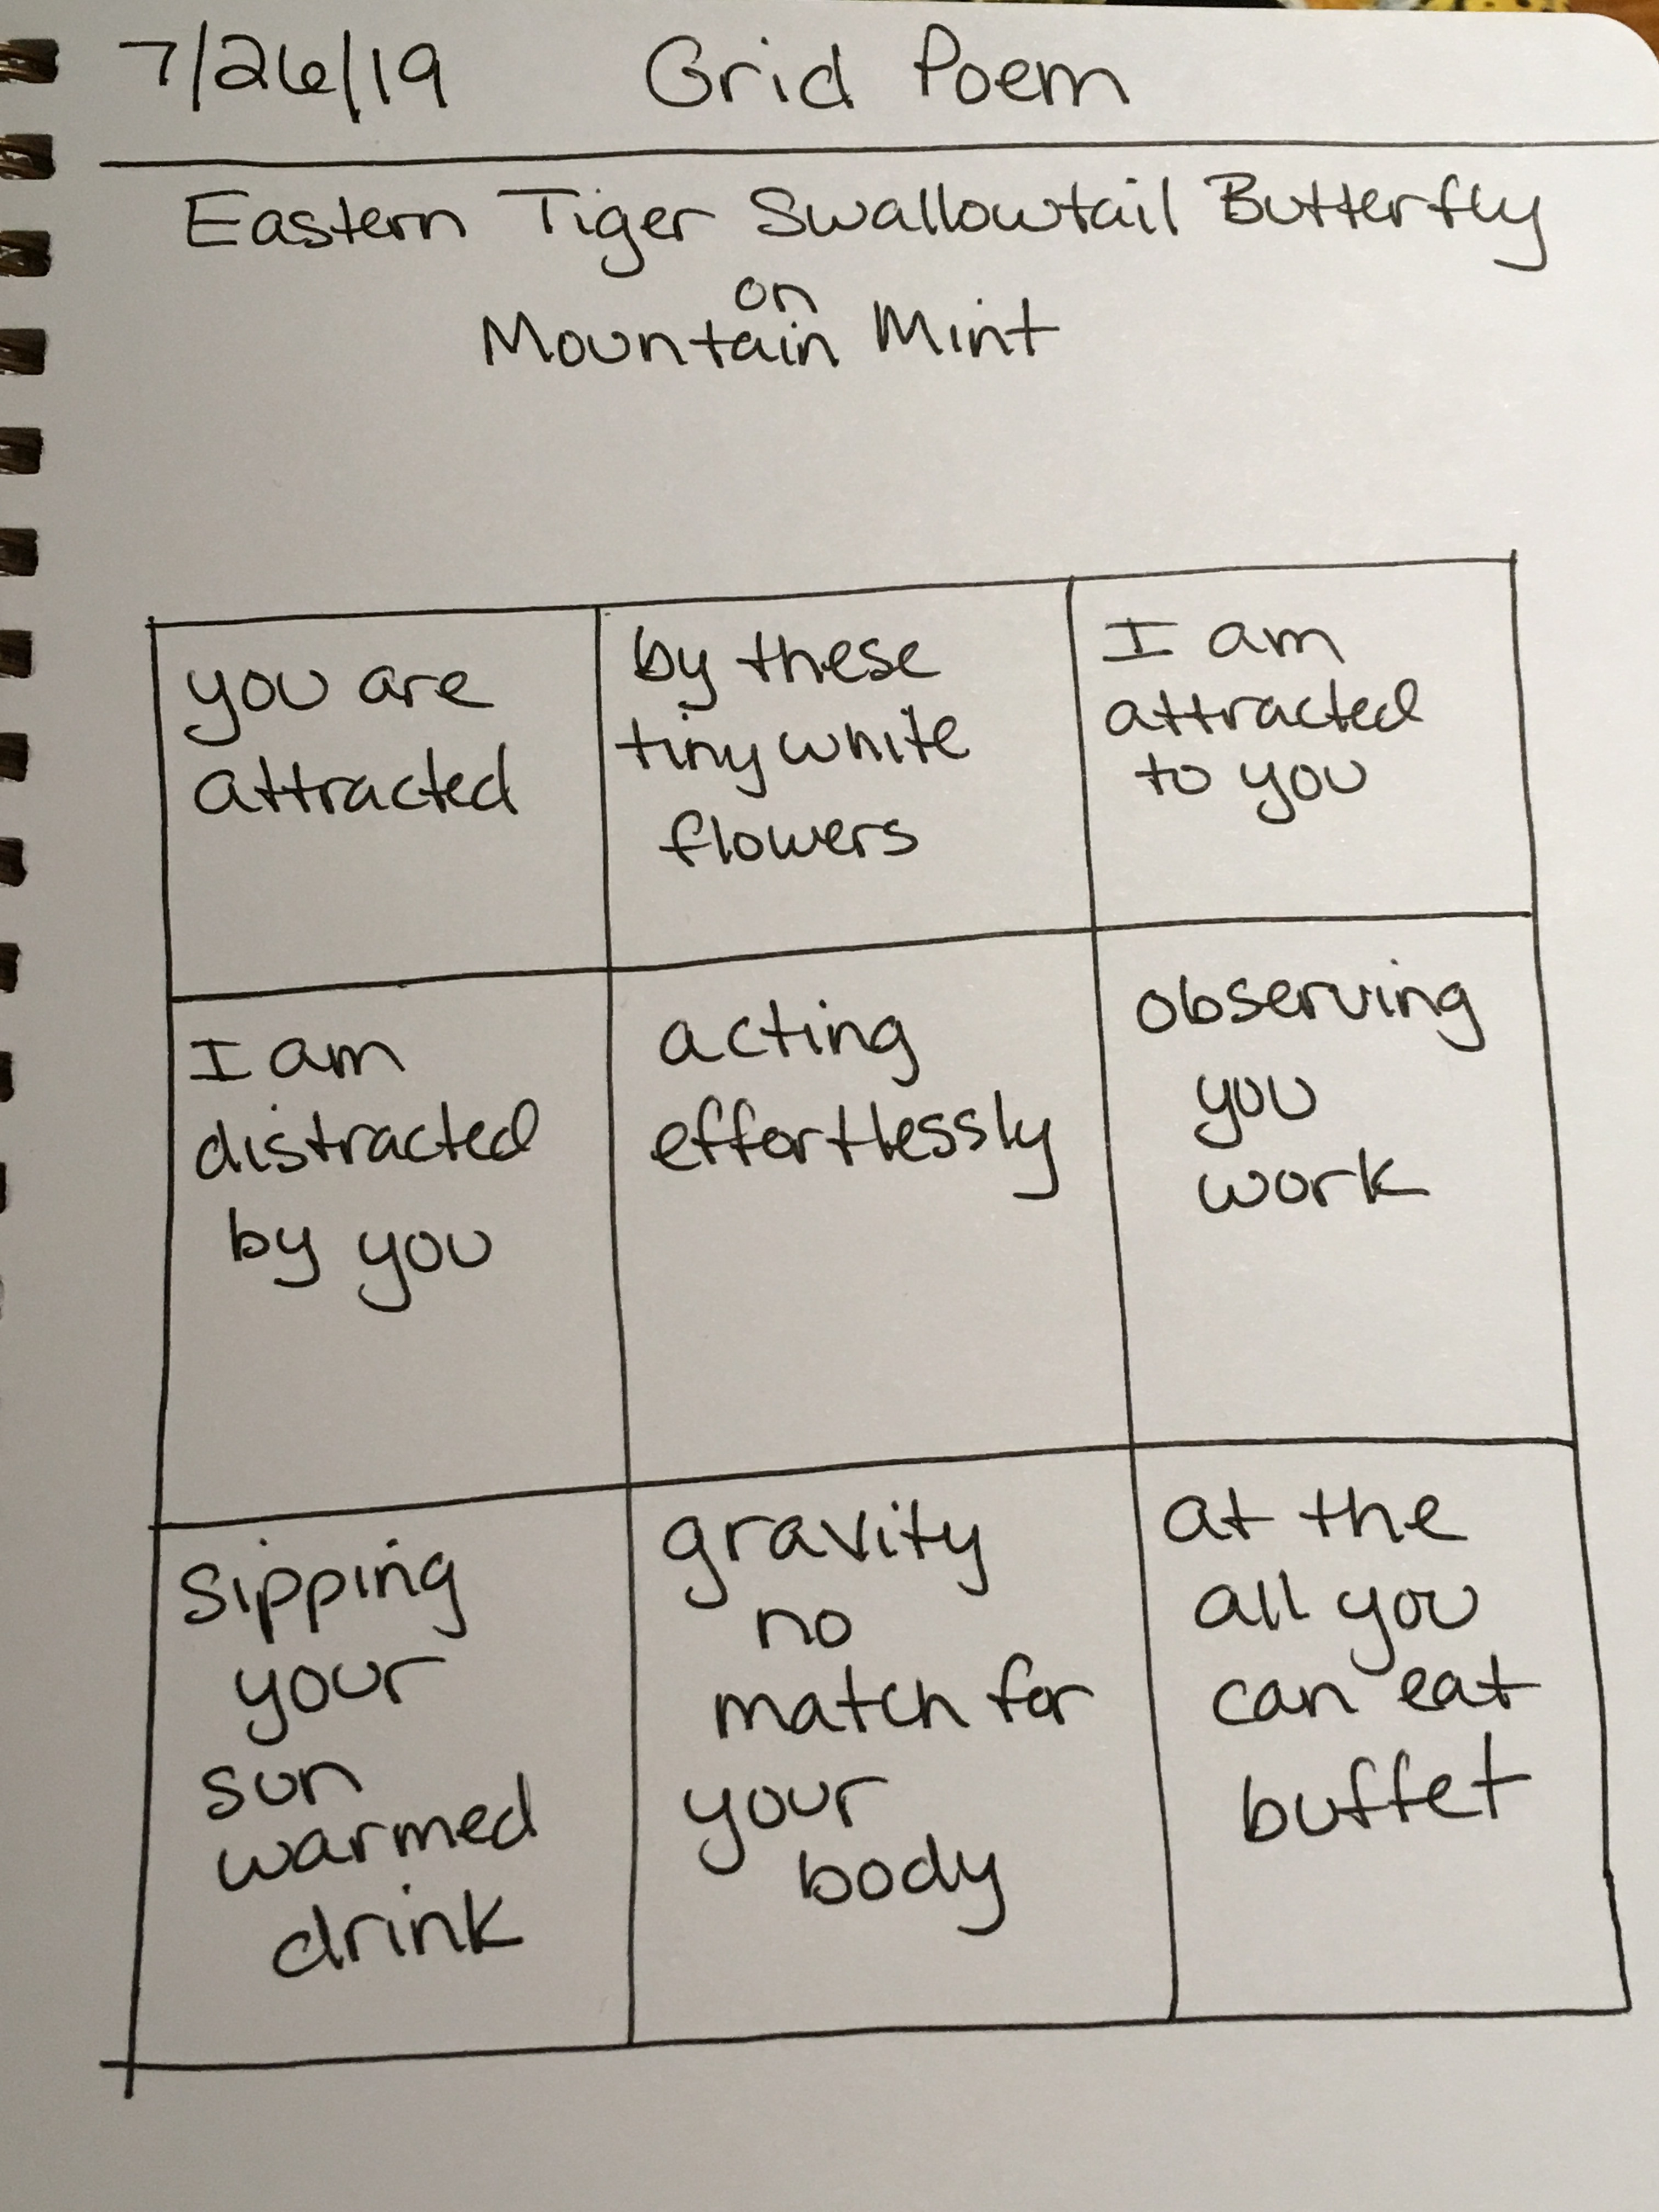 7/26/19 Grid Poem
Eastern Tiger Swallowtail Butterfly
on
Mountain Mint
you are
attracted
by these
tiny white
flowers
I am
attracted
to you
I am
distracted
by you
acting
effortlessly
observing
you
work
sipping
your
sun
warmed
drink
gravity
no
match for
your
body
at the
all you
can eat
buffet